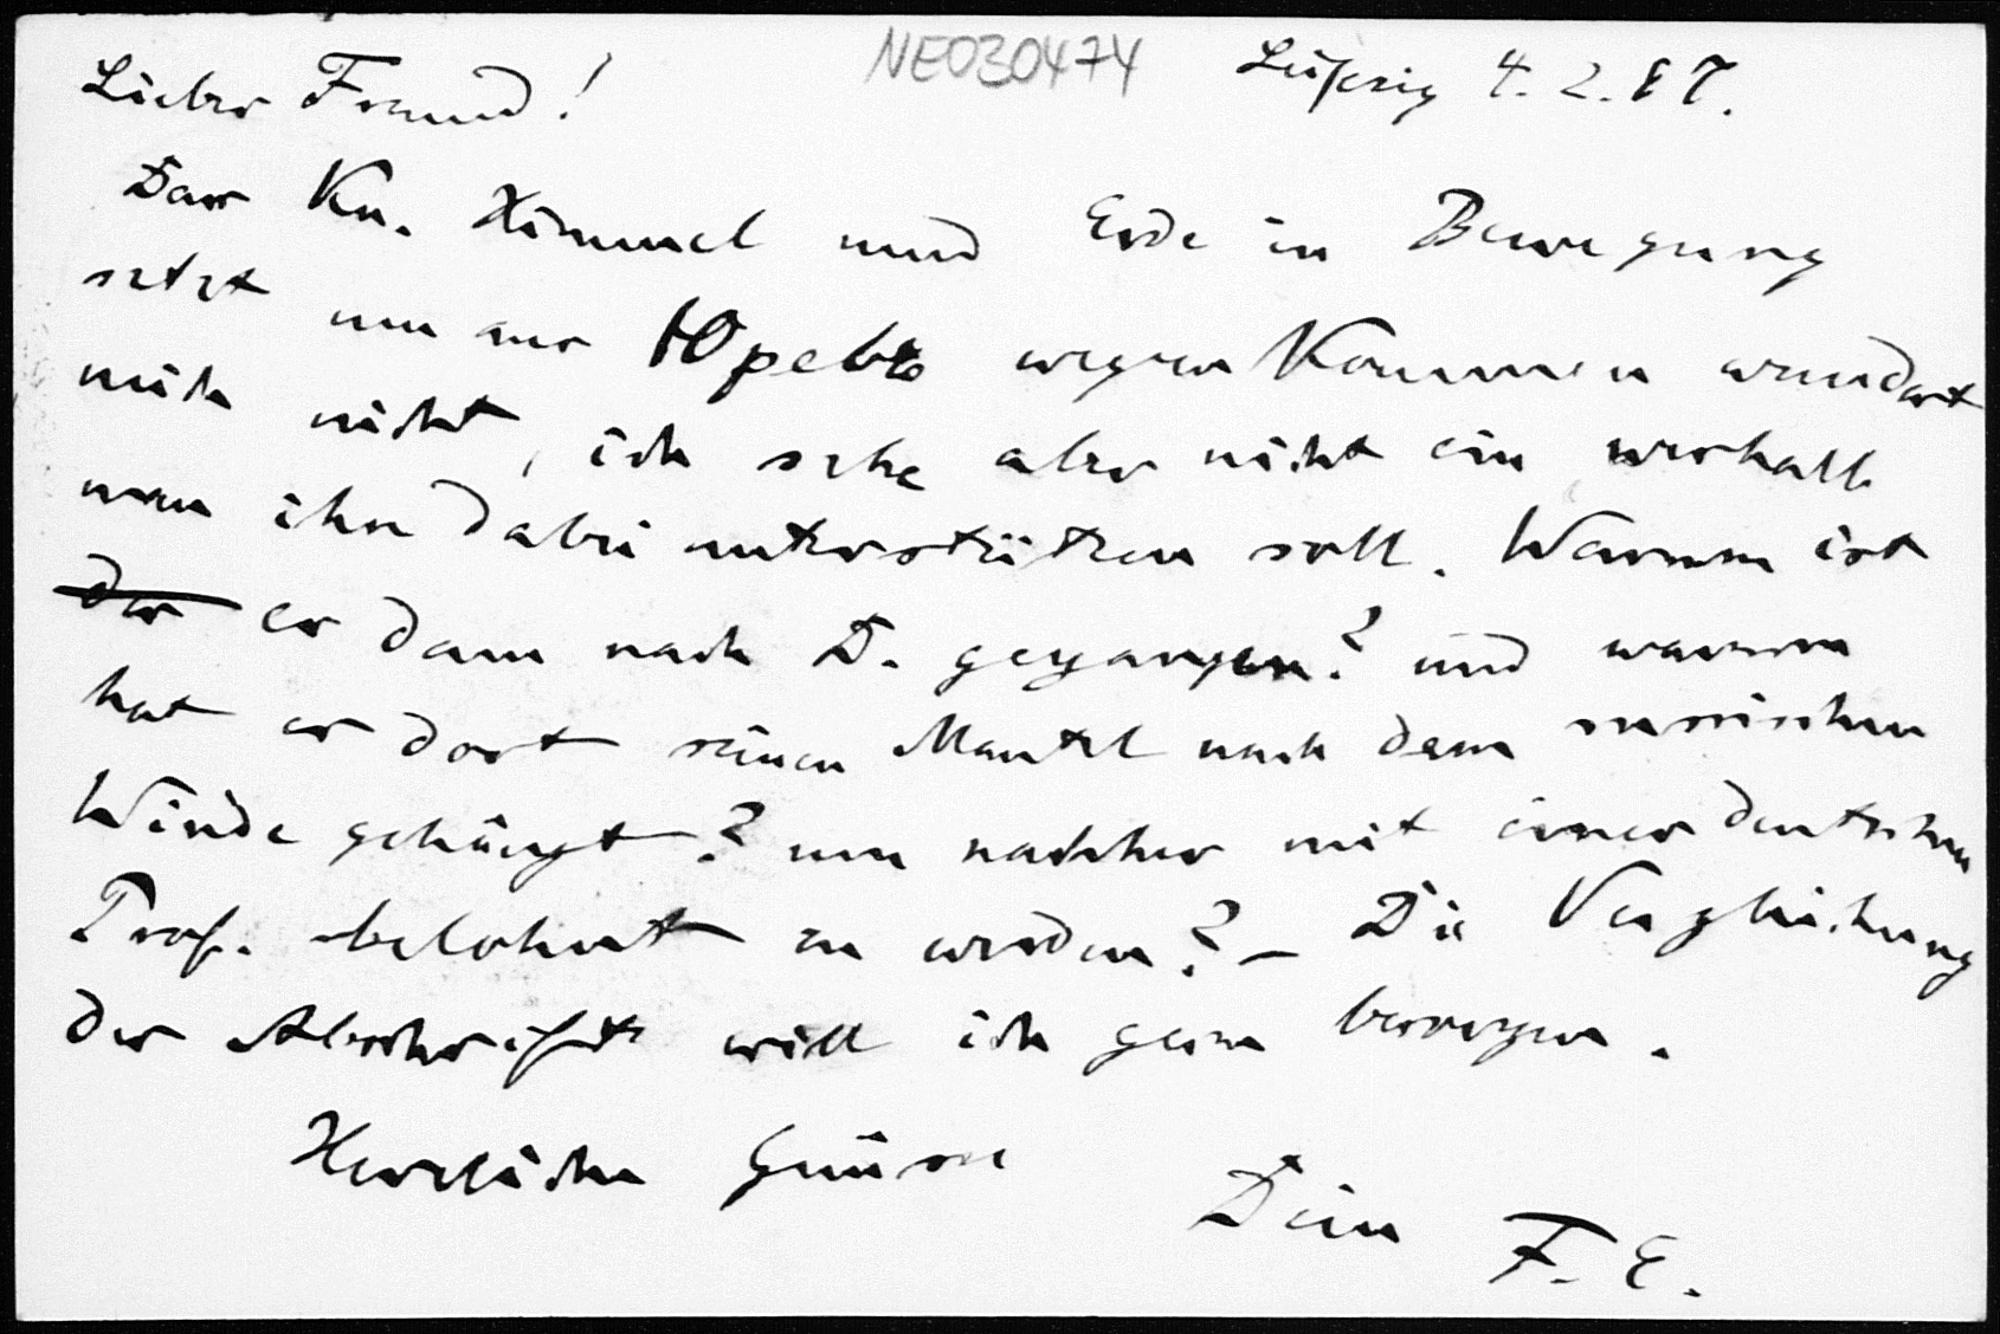 Lieber Freund!
NE030474
Leipzig 4. 2. 87.
Dass Kn. Himmel und Erde in Bewegung
setzt um aus Юрьевъ wegzukommen wundert
mich nicht, ich sehe aber nicht ein weshalb
man ihn dabei unterstützen soll. Warum ist
der er dann nach D. gegangen? und warum
hat er dort seinen Mantel nach dem russischen
Winde gehängt? um nachher mit einer deutschen
Prof. belohnt zu werden? – Die Vergleichung
der Abschrift will ich gern besorgen.
Herzliche Grüsse
Dein
F. E.